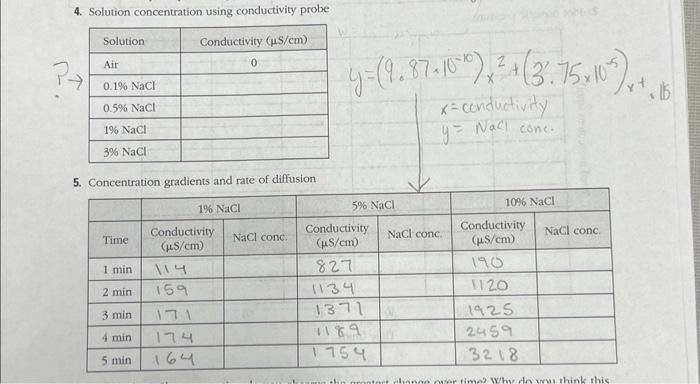 4. Solution concentration using conductivity probe
Solution Conductivity (µS/cm)
Air 0
0.1% NaCl
0.5% NaCl
1% NaCl
3% NaCl
?→
y=(9.87×10⁻¹⁰)x²+(3.75×10⁻⁵)x+.15
x=conductivity
y= NaCl conc.
5. Concentration gradients and rate of diffusion
1% NaCl 5% NaCl 10% NaCl
Time Conductivity (µS/cm) NaCl conc. Conductivity (µS/cm) NaCl conc. Conductivity (µS/cm) NaCl conc.
1 min 114 827 190
2 min 159 1134 1120
3 min 171 1371 1925
4 min 174 1189 2459
5 min 164 1754 3218
change over time? Why do you think this